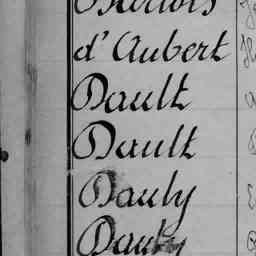 d'Aubert
Dault
Dault
Dauly
Dauly